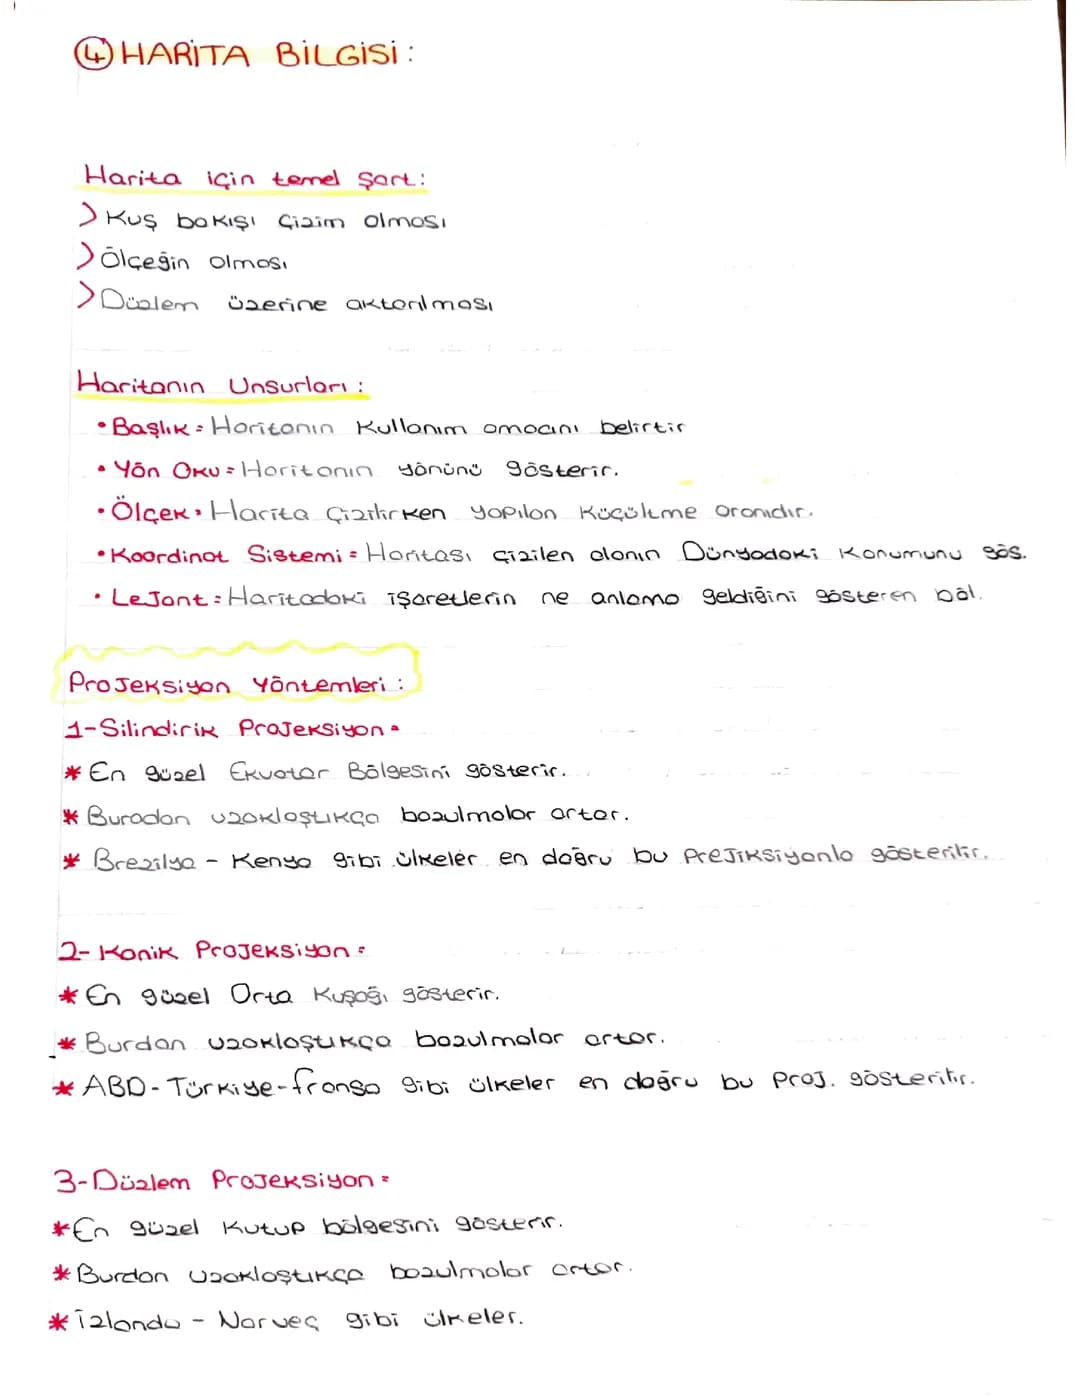 ④ HARİTA BİLGİSİ:
Harita için temel şart:
> Kuş bakışı çizim olması
> Ölçeğin olması
> Düzlem üzerine aktarılması
Haritanın Unsurları:
• Başlık = Haritanın kullanım amacını belirtir
• Yön Oku = Haritanın yönünü gösterir.
• Ölçek = Harita çizilirken yapılan küçülme oranıdır.
• Koordinat Sistemi = Haritası çizilen alanın Dünyadaki konumunu gös.
• Lejant = Haritadaki işaretlerin ne anlama geldiğini gösteren böl.
Projeksiyon Yöntemleri:
1-Silindirik Projeksiyon =
* En güzel Ekvatar Bölgesini gösterir.
* Buradan uzaklaştıkça bozulmalar artar.
* Brezilya - Kenya gibi ülkeler en doğru bu Prejiksiyonla gösterilir.
2- Konik Projeksiyon =
* En güzel Orta Kuşağı gösterir.
* Burdan uzaklaştıkça bozulmalar artar.
* ABD-Türkiye-fransa gibi ülkeler en doğru bu Proj. gösterilir.
3-Düzlem Projeksiyon =
* En güzel Kutup bölgesini gösterir.
* Burdan uzaklaştıkça bozulmalar artar.
* İzlanda - Norveç gibi ülkeler.